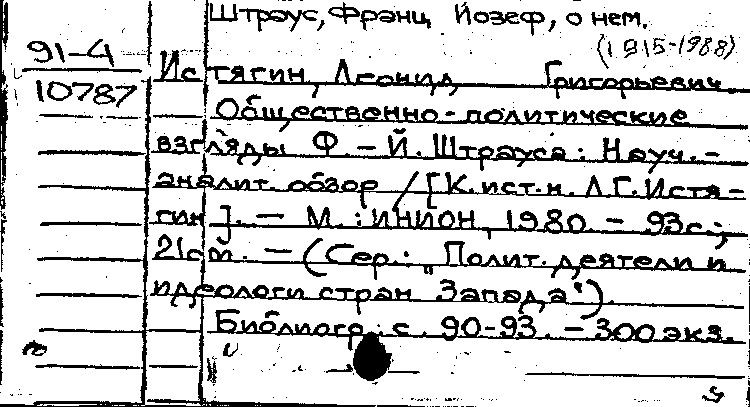 Штраус, Франц Йозеф, о нем.
(1915-1988)
91-4
10787
Истягин, Леонид Григорьевич
Общественно-политические
взгляды Ф.-Й. Штрауса: Науч.-
аналит. обзор / [К. ист. н. Л.Г. Истя-
гин]. — М.: ИНИОН, 1980. — 93с.;
21см. — (Сер.: „Полит. деятели и
идеологи стран Запада").
Библиогр.: с. 90-93. — 300 экз.